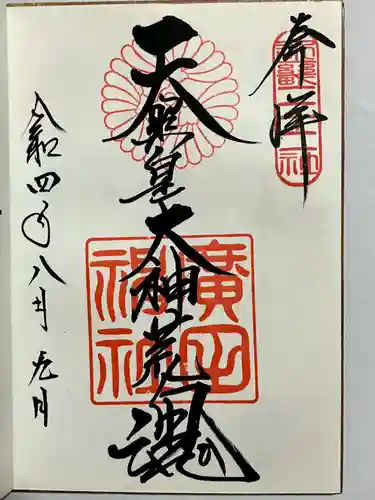 奉拝
天照皇大神荒魂
廣田
神社
令和四年八月